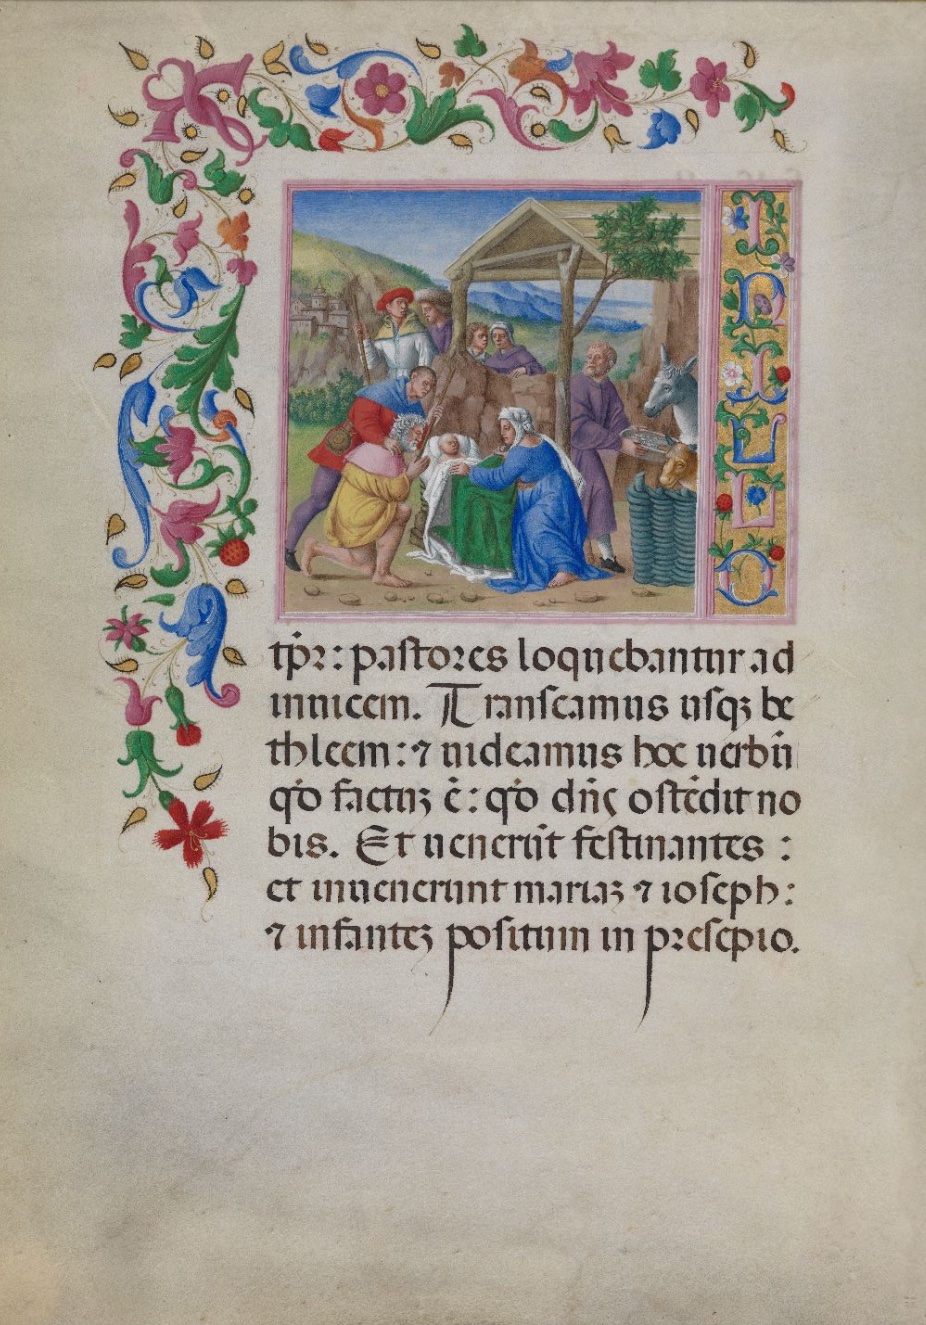 IN ILLO
tp̄r: pastores loquebantur ad
inuicem. Transeamus usqꝫ be
thleem: ⁊ uideamus hoc uerbū
qd̄o factuꝫ ē: qd̄o dn̄s ostēdit no
bis. Et uenerūt festinantes:
et inuenerunt mariaꝫ ⁊ ioseph:
⁊ infanteꝫ positum in presepio.